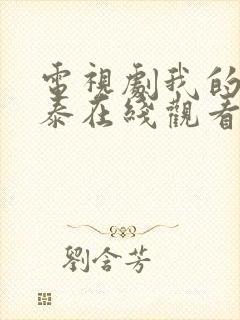 電視劇我的
泰在綫觀看
劉含芳